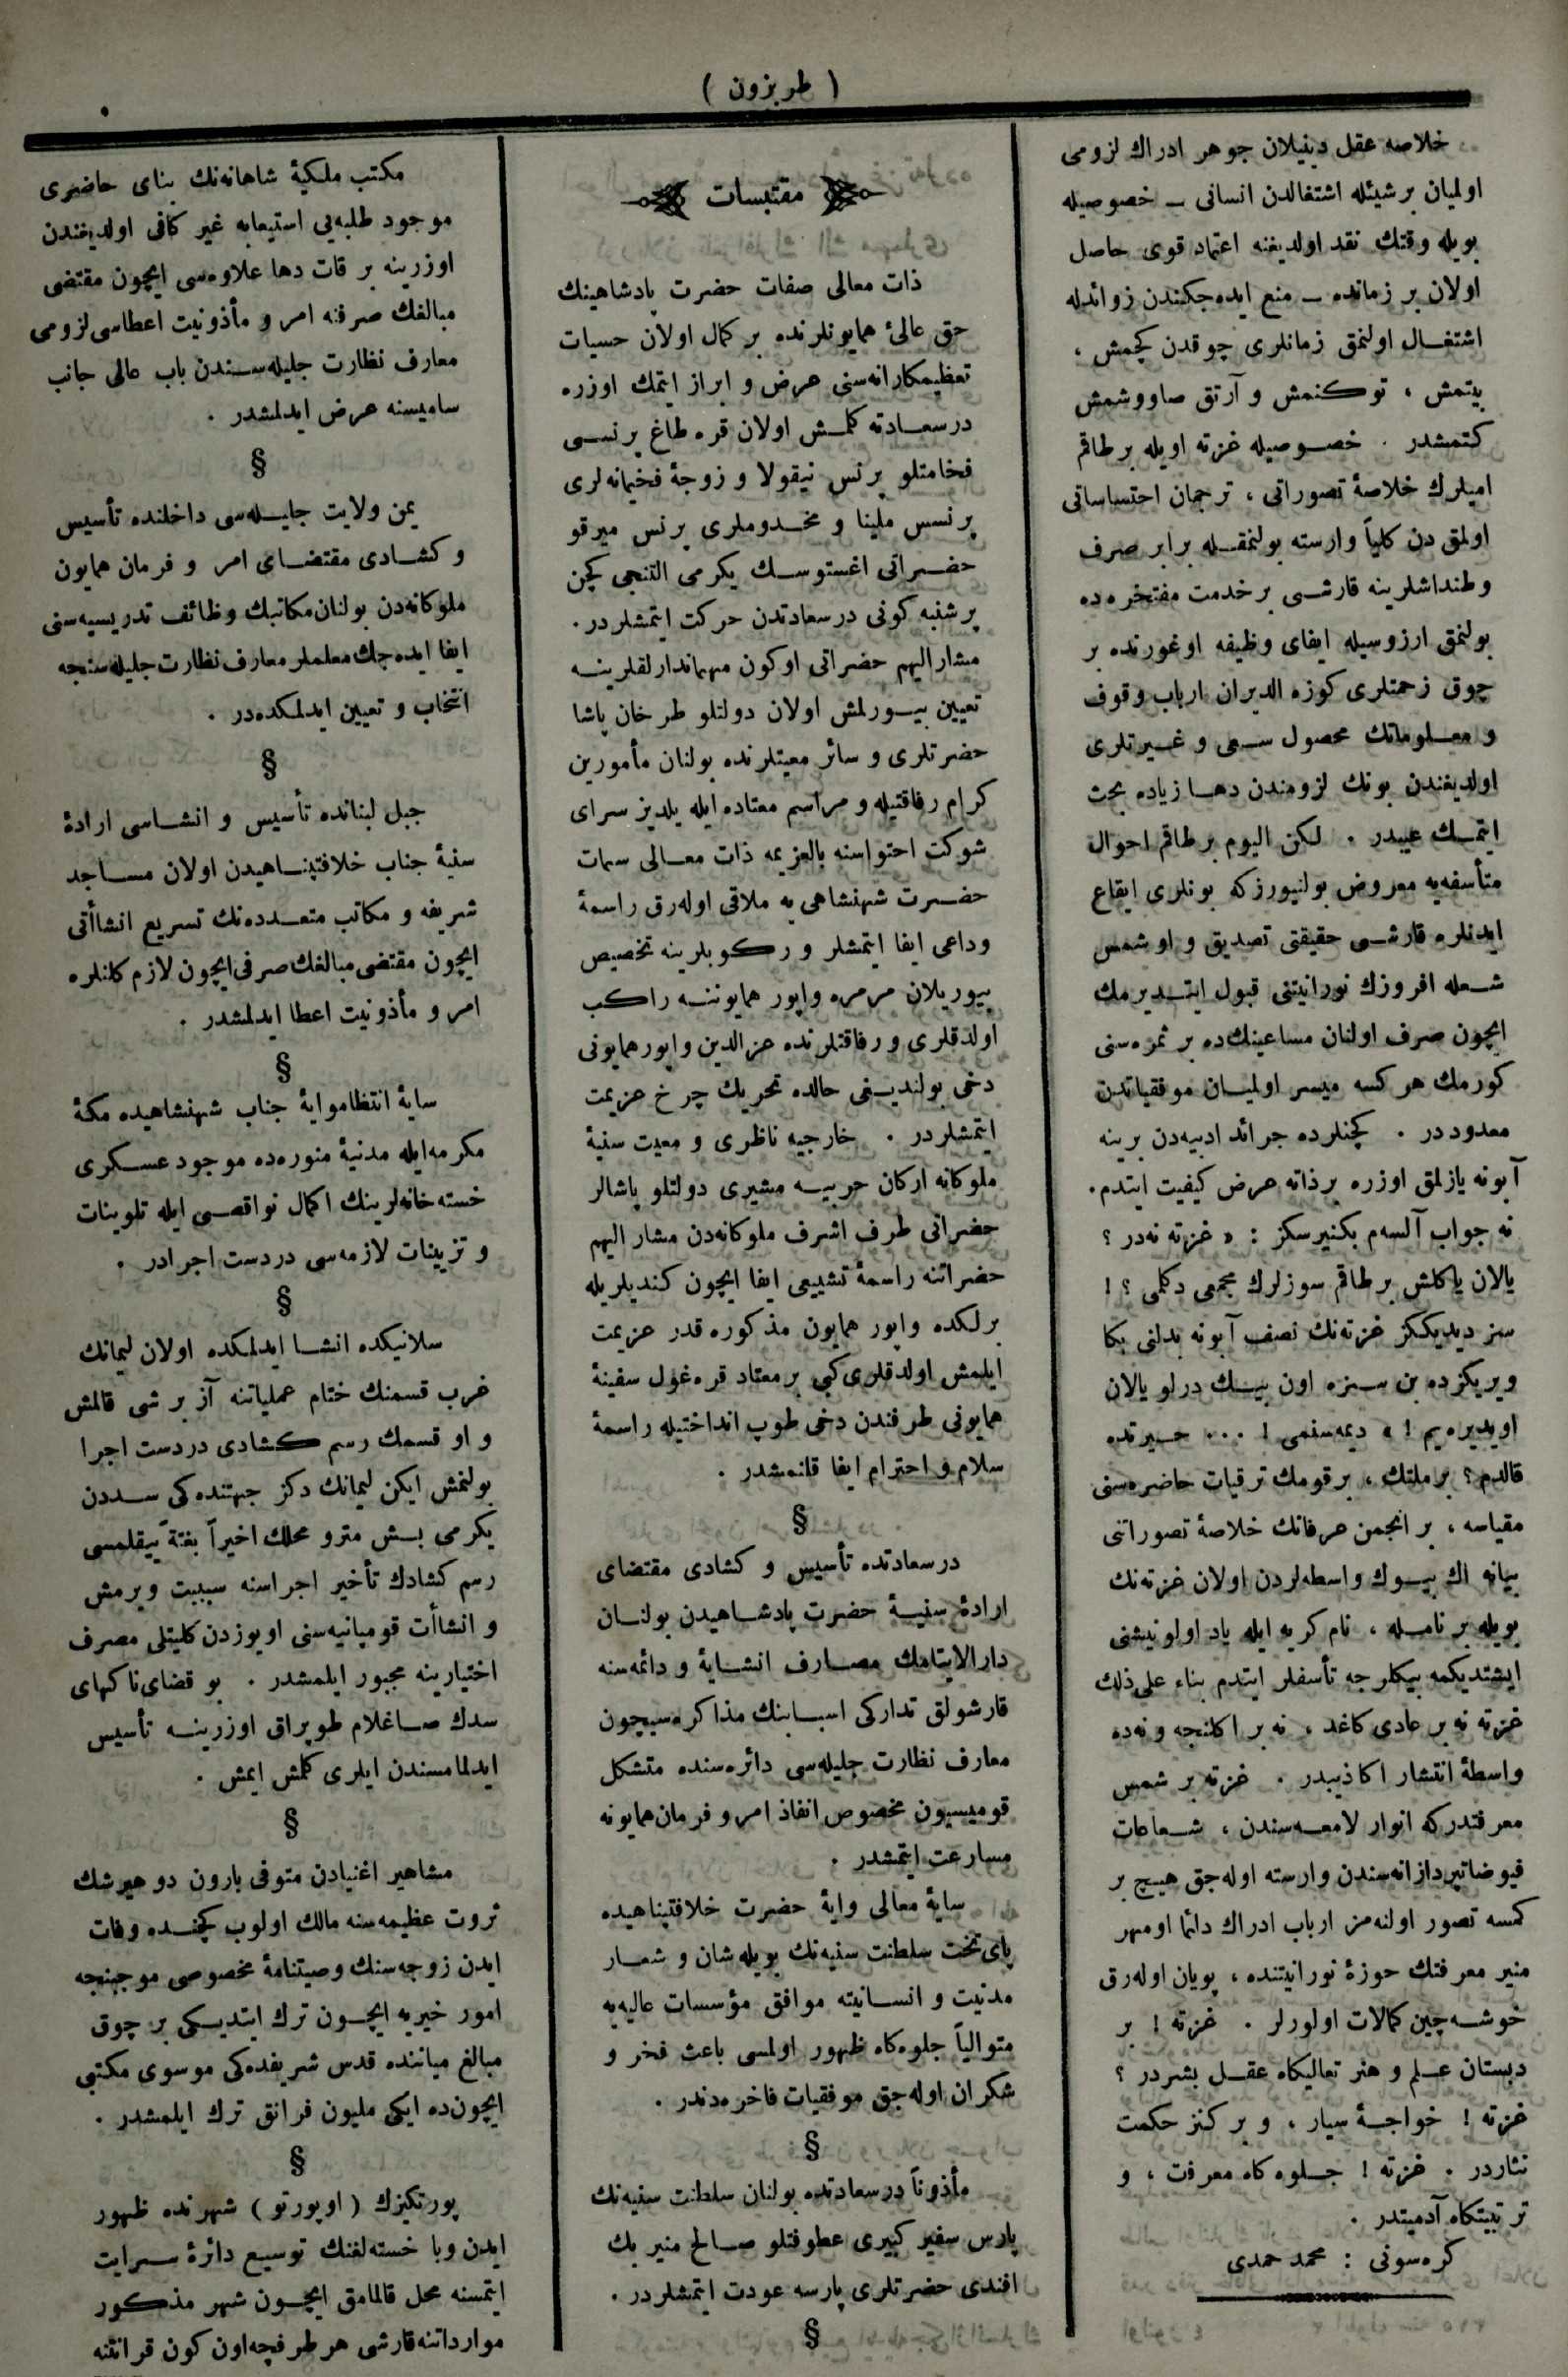 ( طربزون )
خلاصه عقل دینیلان جوهر ادراك لزومی
اولمیان برشیئله اشتغالدن انسانی ـ خصوصیله
بویله وقتك نقد اولدیغنه اعتماد قوی حاصل
اولان بر زمانده ـ منع ایده‌جکندن زوائدله
اشتغـال اولنمق زمانلری چوقدن کچمش ،
بیتمش ، توکنمش و آرتق صاووشمش
کتمشدر . خصـوصیله غزته اویله بر طاقم
امیلرك خلاصهٔ تصوراتی ، ترجمان احتساساتی
اولمق دن کلیاً وارسته بولنمقـله برابر صرف
وطنداشلرینه قارشی بر خدمت مفتخره‌ده
بولنمق ارزوسیله ایفای وظیفه اوغورنده بر
چوق زحمتلری کوزه الدیران ارباب وقوف
و معلوماتك محصول سعی و غیرتلری
اولدیغندن بونك لزومندن دهـا زیاده بحث
ایتمك عیبدر . لکن الیوم بر طاقم احوال
متأسفه‌یه معروض بولنیورزکه بونلری ایقاع
ایدنلره قارشی حقیقتی تصدیق و او شمس
شعله افروزك نورانیتنی قبول ایتدیرمك
ایچون صرف اولنان مساعینك‌ده بر ثمره‌سنی
کورمك هر کسه میسر اولمیـان موفقیاتدن
معدوددر . کچنلرده جرائد ادبیه‌دن برینه
آبونه یازلمق اوزره برذاته عرض کیفیت ایتدم.
نه جواب آلسه‌م بکنیرسکز : « غزته نه‌در ؟
یالان یاکلش بر طاقم سوزلرك مجمعی دکلمی ؟ !
سز دیدیککز غزته‌نك نصف آبونه بدلنی بکا
ویریکزده بن سزه اون بیـك درلو یالان
اویدیره‌یم ! » دیمه‌سنمی ! ... حیرتده
قالدم ؟ بر ملتك ، بر قومك ترقیات حاضره‌سنی
مقیاسه ، بر انجمن عرفانك خلاصهٔ تصوراتنی
بیانه اك بیـوك واسطه‌لردن اولان غزته‌نك
بویله بر نامـله ، نام کریه ایله یاد اولونیشنی
ایشتدیکمه بیکلرجه تأسفلر ایتدم بناء علی ذلك
غزته نه بر عادی کاغد ، نه بر اکلنجه و نه‌ده
واسطهٔ انتشار اکاذیبدر . غزته بر شمس
معرفتدرکه انوار لامعه‌سندن ، شـعاعات
فیوضاتپردازانه‌سندن وارسته اوله‌جق هیـچ بر
کمسه تصور اولنه‌مز ارباب ادراك دائما اومهر
منیر معرفتك حوزهٔ نورانیتنده ، پویان اوله‌رق
خوشـه‌چین کمالات اولورلر . غزته ! بر
دبستان عـلم و هنر تعالیکاه عقـل بشردر ؟
غزته ! خواجـهٔ سیار ، و بر کنز حکمت
نثاردر . غزته ! جـلوه‌کاه معرفت ، و
تربیتکاه آدمیتدر .
کره‌سونی : محمد حمدی
مقتبسات
ذات معالی صفات حضرت پادشاهینك
حق عالیٔ همایونلرنده بر کمال اولان حسیات
تعظیمکارانه‌سنی عرض و ابراز ایتمك اوزره
درسعـادته کلمـش اولان قره طاغ پرنسـی
فخامتلو پرنس نیقولا و زوجهٔ فخیمانه‌لری
پرنسس ملینا و مخـدوملری پرنس میرقو
حضـراتی اغستوسـك یکرمی التنجی کچن
پرشنبه کونی درسعادتدن حرکت ایتمشلردر.
مشارالیهم حضراتی اوکون مهماندارلقلرینـه
تعیین بیـورلمش اولان دولتلو طرخان پاشا
حضرتلری و سائر معیتلرنده بولنان مأمورین
کرام رفاقتیله و مراسم معتاده ایله یلدیز سرای
شوکت احتواسنه بالعزیمه ذات معـالی سمات
حضـرت شهنشاهی یه ملاقی اوله‌رق راسمهٔ
وداعی ایفا ایتمشلر و رکوبلرینه تخصیص
بیوریلان مرمره واپور همایوننـه راکب
اولدقلری و رفاقتلرنده عزالدین واپور همایونی
دخی بولندیـغی حالده تحریك چرخ عزیمت
ایتمشلردر . خارجیه ناظری و معیت سنیهٔ
ملوکانه ارکان حربیـه مشیری دولتلو پاشالر
حضراتی طرف اشرف ملوکانه‌دن مشارالیهم
حضراتنه راسمهٔ تشییعی ایفا ایچون کندیلریله
برلکده واپور همایون مذکوره قدر عزیمت
ایلمش اولدقلری کبی بر معتاد قره‌غول سفینهٔ
همایونی طرفندن دخی طوپ انداختیله راسمهٔ
سلام و احترام ایفا قلنمشدر .
§
درسعادتده تأسیس و کشادی مقتضای
ارادهٔ سنیـهٔ حضرت پادشـاهیدن بولنـان
دارالایتامك مصـارف انشـایهٔ و دائمه‌سنه
قارشولق تدارکی اسبـابنك مذاکره‌سیچون
معارف نظارت جلیله‌سی دائره‌سنده متشکل
قومیسیون مخصوص انفاذ امر و فرمان همایونه
مسارعت ایتمشدر .
سایهٔ معالی وایهٔ حضرت خلافتپناهیده
پای تخت سلطنت سنیه‌نك بویله شان و شعـار
مدنیت و انسـانیته موافق مؤسسات عالیه‌یه
متوالیاً جلوه‌کاه ظهور اولمسی باعث فخر و
شکران اوله‌جق موفقیات فاخره‌دندر .
§
مأذوناً درسعادتده بولنان سلطنت سنیه‌نك
پارس سفیر کبیری عطوفتلو صـالح منیر بك
افندی حضرتلری پارسه عودت ایتمشلردر .
§
مکتب ملکیهٔ شاهانه‌نك بنای حاضری
موجود طلبه‌یی استیعابه غیر کافی اولدیغندن
اوزرینه بر قات دها علاوه‌سی ایچون مقتضی
مبالغك صرفنه امر و مأذونیت اعطاسی لزومی
معارف نظارت جلیله‌سـندن باب عالی جانب
سامیسنه عرض ایدلمشدر .
§
یمن ولایت جلیـله‌سی داخلنده تأسیس
و کشـادی مقتضـای امر و فرمان همایون
ملوکانه‌دن بولنان مکاتبك وظائف تدریسیه‌سنی
ایفا ایده‌جك معلملر معارف نظارت جلیله‌سنجه
انتخاب و تعیین ایدلمکده‌در .
§
جبل لبنانده تأسیس و انشـاسی ارادهٔ
سنیهٔ جناب خلافتپنـاهیدن اولان مسـاجد
شریفه و مکاتب متعـدده‌نك تسریع انشاأتی
ایچون مقتضی مبالغك صرفی ایچون لازم کلنلره
امر و مأذونیت اعطا ایدلمشدر .
§
سایهٔ انتظاموایهٔ جناب شهنشاهیده مکهٔ
مکرمه‌ایله مدنیهٔ منوره‌ده موجود عسـکری
خسته‌خانه‌لرینك اکمال نواقصـی ایله تلوینات
و تزیینات لازمه‌سی دردست اجرادر .
§
سلانیکده انشـا ایدلمکده اولان لیمانك
غرب قسمنك ختام عملیاتنه آز بر شی قالمش
و او قسمك رسم کـشادی دردست اجرا
بولنمش ایکن لیمانك دکز جهتنده‌کی سـددن
یکرمی بـش مترو محلك اخیراً بغتةً ییقلمسی
رسم کشادك تأخیر اجراسنه سببیت ویرمش
و انشاأت قومپانیه‌سنی اویوزدن کلیتلی مصرف
اختیارینه مجبور ایلمشدر . بو قضای ناکهای
سدك صـاغلام طوپراق اوزرینـه تأسیس
ایدلمامسندن ایلری کلمش ایمش .
§
مشاهیر اغنیادن متوفی بارون دو هیرشك
ثروت عظیمه‌سنه مالك اولوب کچنـده وفات
ایدن زوجه‌سنك وصیتنامهٔ مخصوصی موجبنجه
امور خیریه ایچـون ترك ایتدیـکی بر چوق
مبالغ میاننده قدس شریفده‌کی موسوی مکتبی
ایچون‌ده ایکی ملیون فرانق ترك ایلمشدر .
§
پورتکیزك ( اوپورتو ) شهرنده ظهور
ایدن وبا خسته‌لغنك توسیع دائرهٔ سـرایت
ایتمسنه محل قالمامق ایچـون شهر مذکـور
موارداتنه قارشی هر طرفچه اون کون قرانتنه